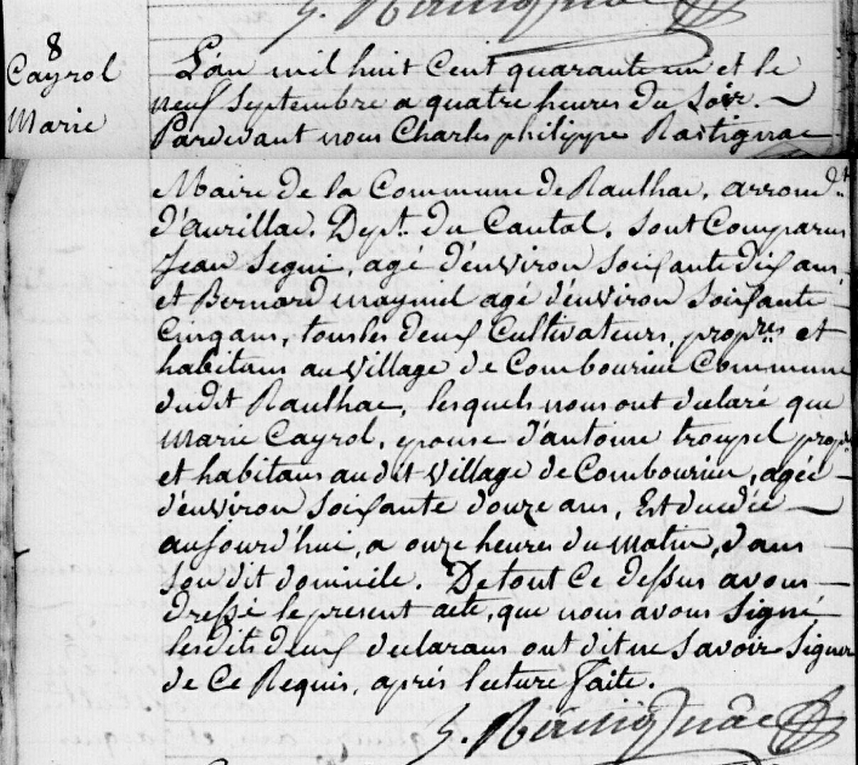 8
Cayrol
Marie
L'an mil huit Cent quarante un et le
neuf Septembre a quatre heures du Soir.
Pardevant nous Charles philippe Rastignac
Maire de la Commune de Raulhac, arrondt
d'aurillac. Dept. du Cantal. Sont Comparus
Jean Segui, agé d'environ Soixante dix ans
et Bernard maymil agé d'environ Soixante
Cinq ans, tous les deux Cultivateurs, propres et
habitans au village de Combourieu Commune
dudit Raulhac, lesquels nous ont declaré que
Marie Cayrol, epouse d'antoine troupel propre
et habitans audit village de Combourieu, agée
d'environ Soixante douze ans, Est decedée
aujourd'hui, a onze heures du matin, dans
Son dit domicile. De tout Ce dessus avons
dressé le present acte, que nous avons Signé
les dits deux declarans ont dit ne Savoir Signer
de Ce Requis, après lecture faite.